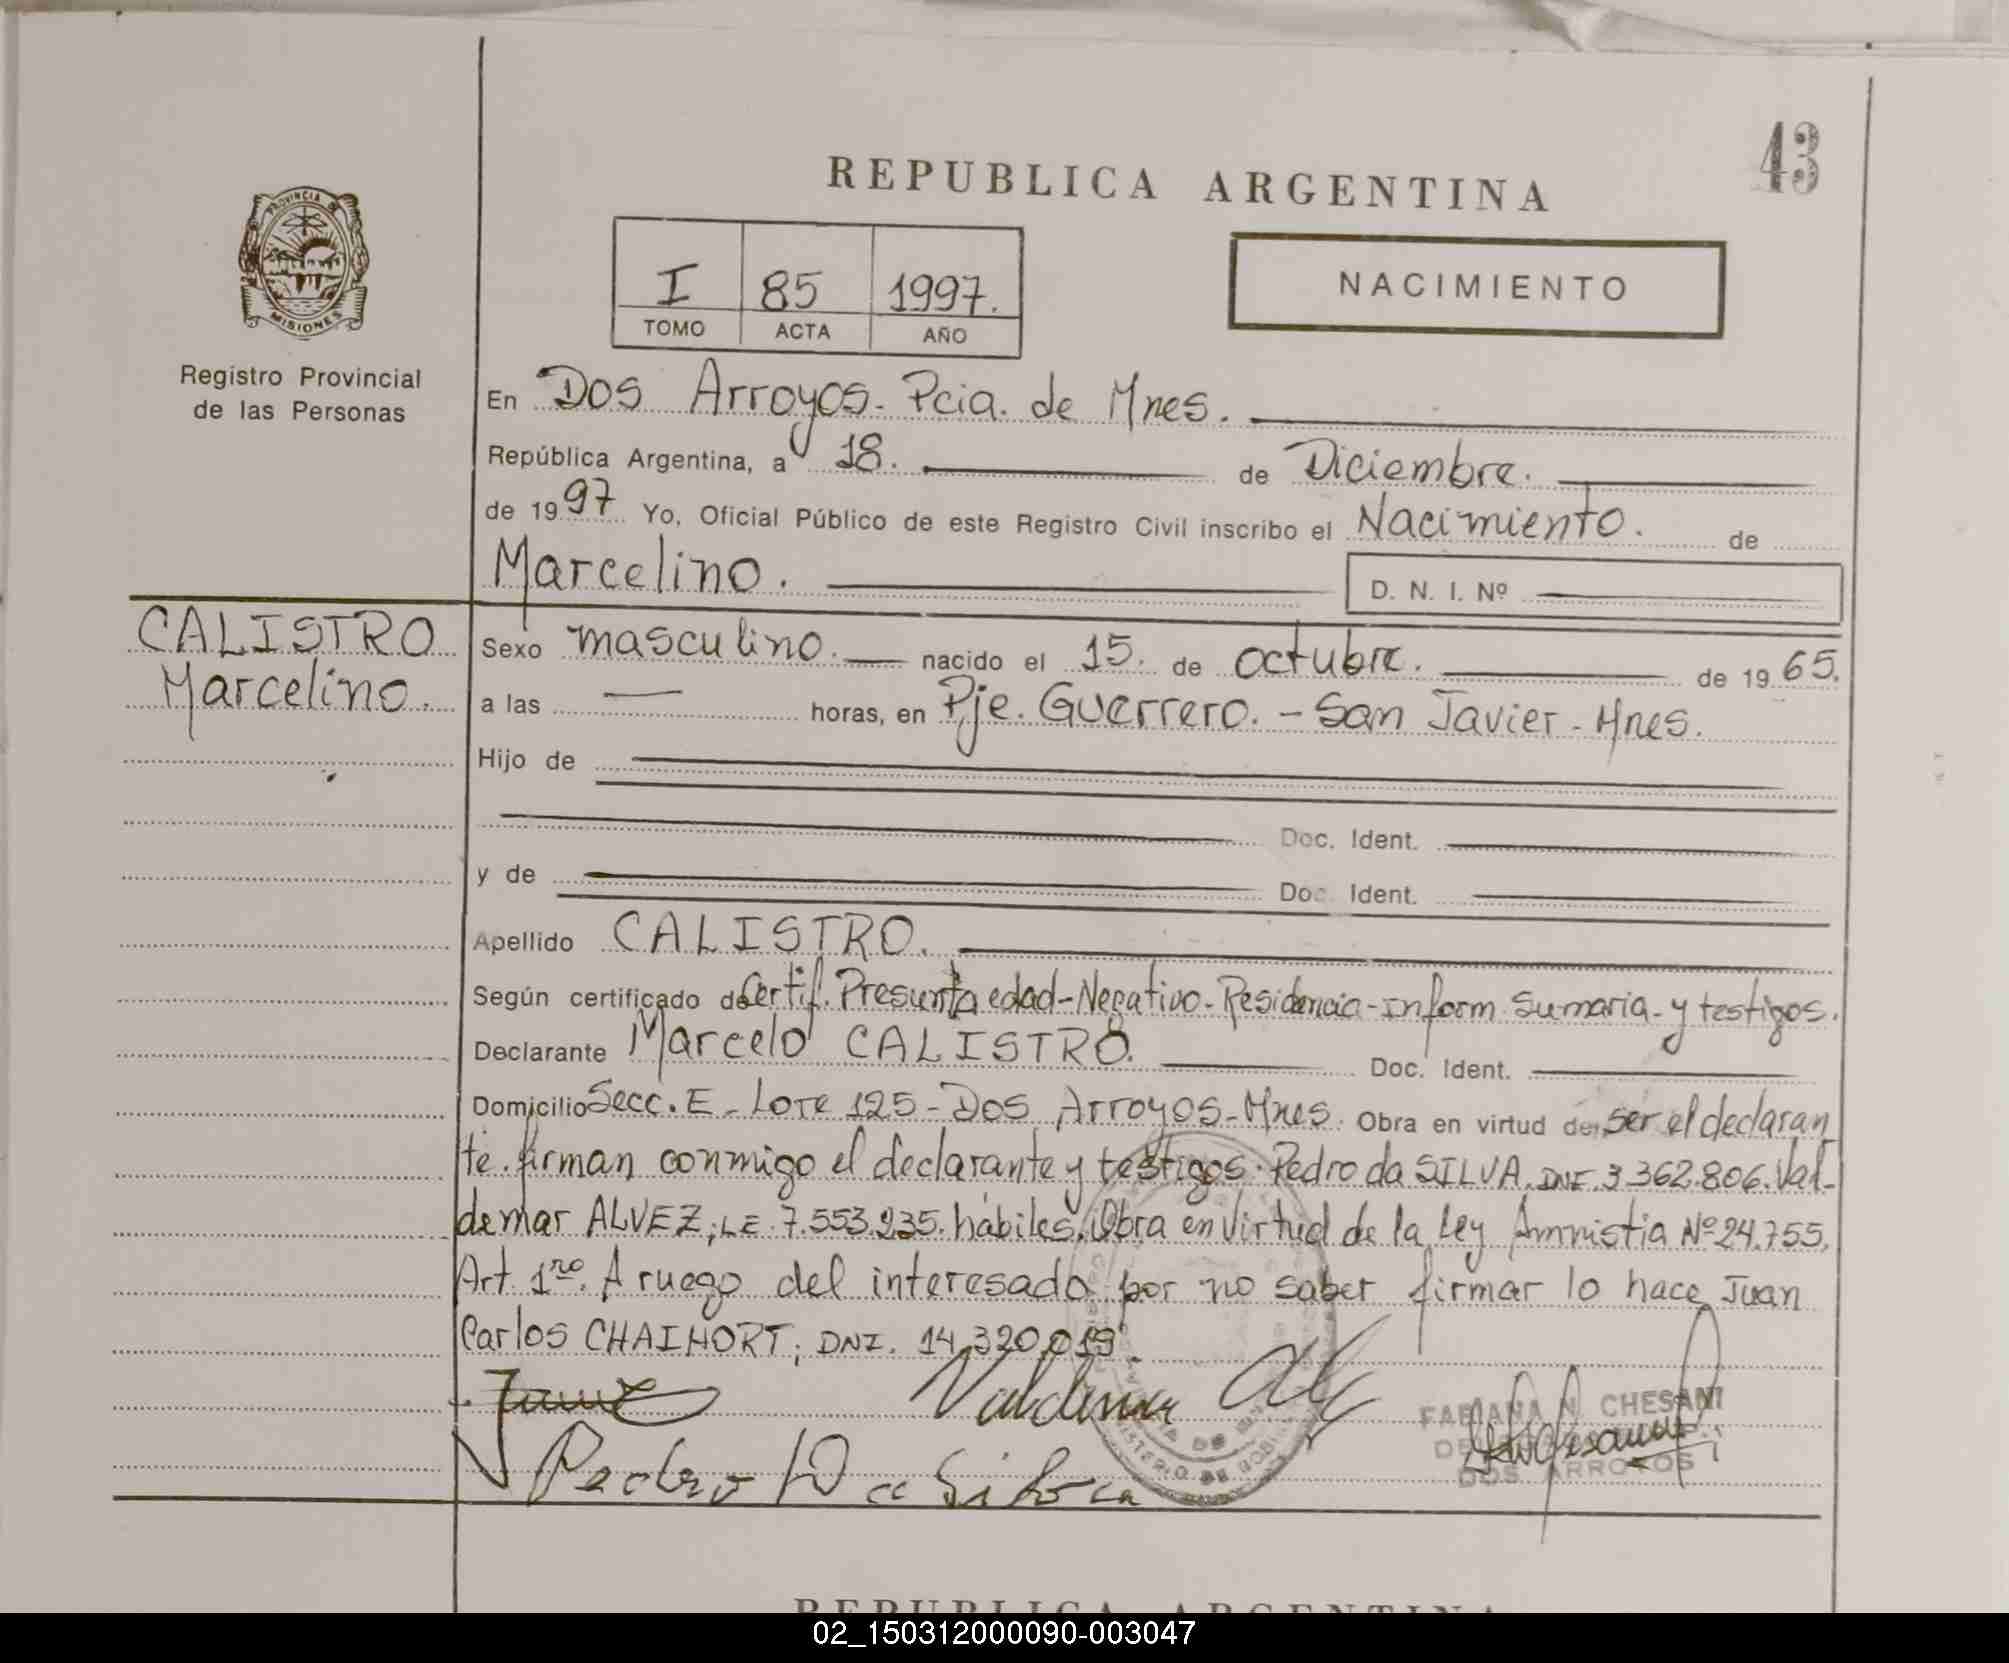 43
REPUBLICA ARGENTINA
PROVINCIA DE
MISIONES
Registro Provincial
de las Personas
I 85 1997.
TOMO ACTA AÑO
NACIMIENTO
En Dos Arroyos. Pcia. de Mnes.
República Argentina, a 18. de Diciembre.
de 1997 Yo, Oficial Público de este Registro Civil inscribo el Nacimiento. de
Marcelino. D. N. I. Nº
CALISTRO
Marcelino.
Sexo masculino. nacido el 15. de octubre. de 1965.
a las horas, en Pje. Guerrero. - San Javier - Mnes.
Hijo de
Doc. Ident.
y de Doc. Ident.
Apellido CALISTRO.
Según certificado de Certif. Presunta edad-Negativo-Residencia-Inform. Sumaria-y testigos.
Declarante Marcelo CALISTRO. Doc. Ident.
Domicilio Secc. E - Lote 125 - Dos Arroyos - Mnes. Obra en virtud de ser el declaran
te. firman conmigo el declarante y testigos: Pedro da SILVA, DNI. 3.362.806. Val-
demar ALVEZ; LE. 7.553.235. hábiles. Obra en virtud de la Ley Amnistia Nº 24.755,
Art. 1ro. A ruego del interesado por no saber firmar lo hace Juan
Carlos CHAIHORT; DNI. 14.320.019.
Valdemar
Pedro Da Silva
FABIANA N. CHESANI
DOS ARROYOS
REPUBLICA ARGENTINA
02_150312000090-003047